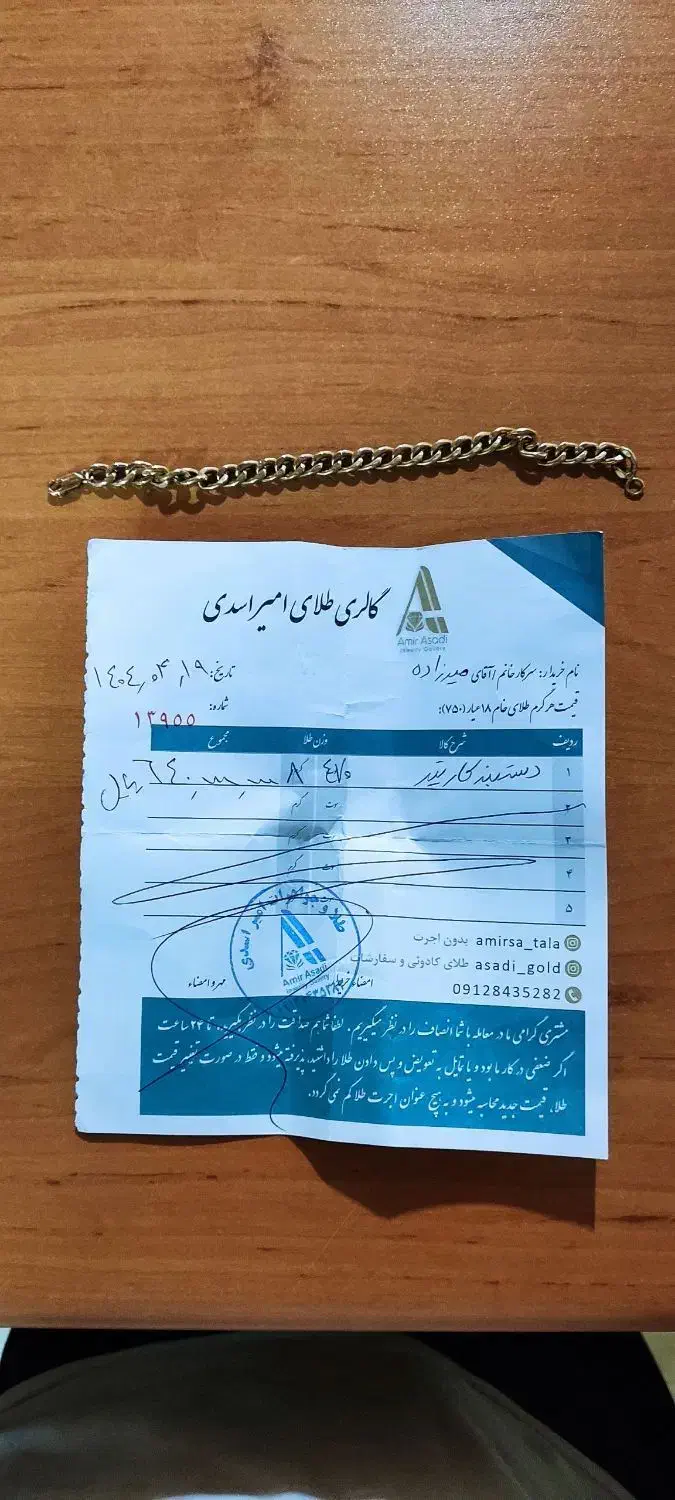 گالری طلای امیر اسدی
Amir Asadi
Jewelry Gallery
نام خریدار: سرکار خانم / آقای میرزاده
تاریخ: ۱۴۰۴٫۰۴٫۱۹
قیمت هر گرم طلای خام ۱۸ عیار (۷۵۰):
شماره: ۱۳۹۵۵
ردیف شرح کالا وزن طلا مجموع
۱ دستبند کارتیه ۸ ریال
۲ سوت گرم
۳ سوت گرم
۴ سوت گرم
۵
amirsa_tala بدون اجرت
asadi_gold طلای کادوئی و سفارشات
09128435282
امضاء خریدار
مهر و امضاء
Amir Asadi
Jewelry Gallery
مشتری گرامی ما در معامله با شما انصاف را در نظر میگیریم. لطفا شما هم صداقت را در نظر بگیرید. تا ۲۴ ساعت
اگر ضعفی در کار ما بود و یا تمایل به تعویض و پس دادن طلا را داشتید، پذیرفته میشود و فقط در صورت تغییر قیمت
طلا، قیمت جدید محاسبه میشود و به هیچ عنوان اجرت طلا کم نمی گردد.